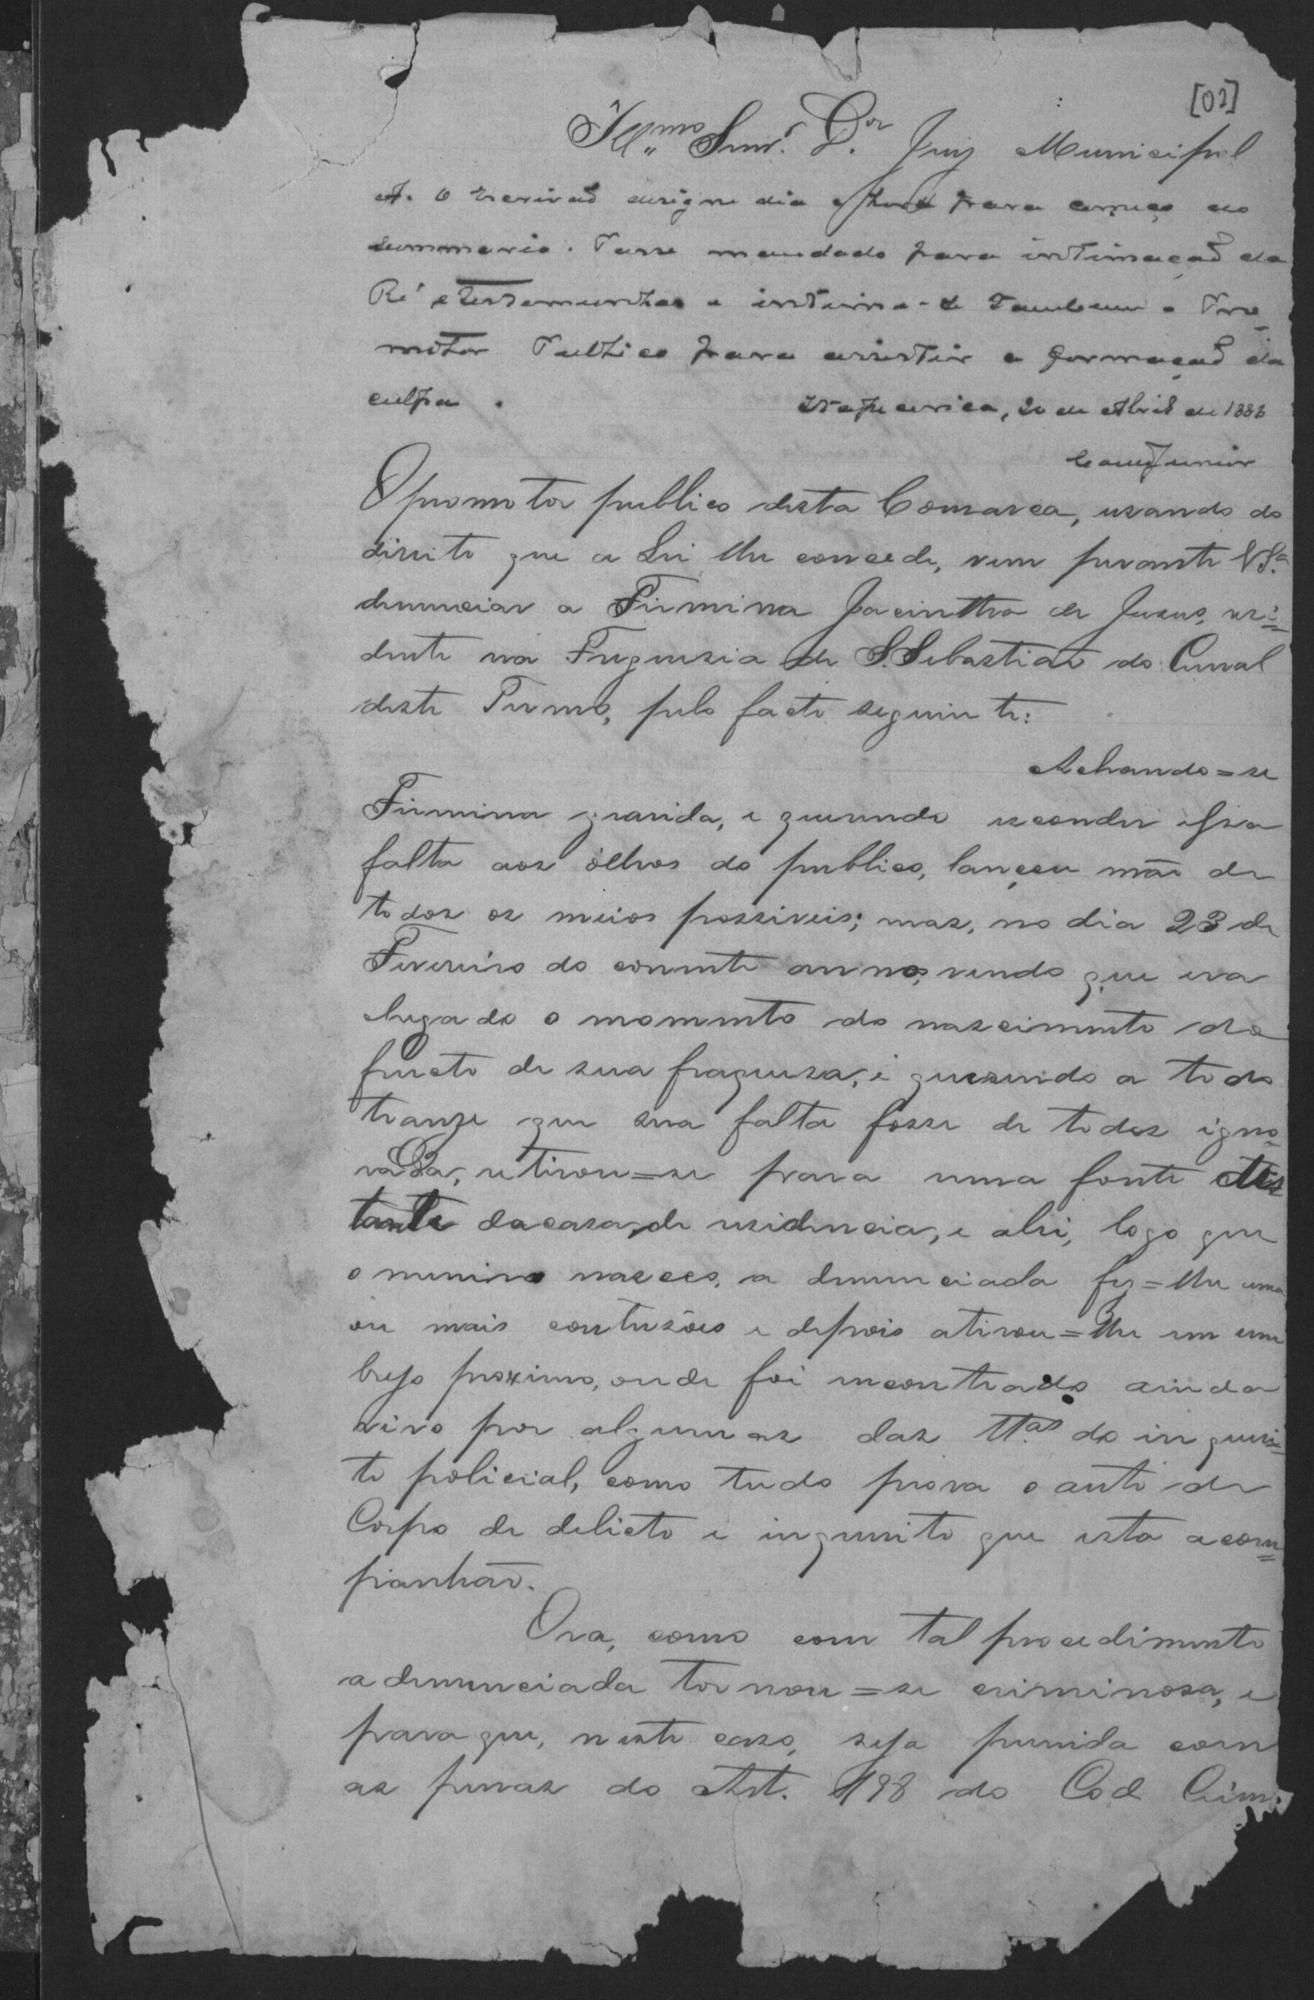 [02]
Ill.mo Snr. Dor Juiz Municipal
A. O escrivaõ designe dia e hora para começo do
summario. Passe mandado para intimaçaõ da
Ré e testemunhas e intime-se tambem o Pro-
motor Publico para assistir a formaçaõ da
culpa. Itapecerica, 20 de Abril de 1883
O promotor publico desta Comarca, usando do
direito que a Lei lhe concede, vem perante V.S.a
denunciar a Firmina Jacinttra de Jesus, rezi=
dente na Freguesia de S. Sebastiaõ do Curral
deste Termo, pelo facto seguinte:
Achando=se
Firmina gravida, e querendo esconder essa
falta aos olhos do publico, lançou mão de
todos os meios possiveis; mas, no dia 23 de
Fevereiro do corrente anno, vendo que era
chegado o momento do nascimento do
fructo de sua fraqueza, e querendo a todo
tranze que sua falta fosse de todos igno-
rada, retirou=se para uma fonte dis
tante da casa de residencia, e ahi, logo que
o menino nasceo, a denunciada fez=lhe uma
ou mais contusões e depois atirou=lhe em um
brejo proximo, onde foi encontrado ainda
vivo por algumas das tt.as do inqueri-
to policial, como tudo prova o auto de
Corpo de delicto e inquerito que esta acom=
panhão.
Ora, como com tal procedimento
a denunciada tornou=se criminosa, e
para que, neste caso, seja punida com
as penas do Art. 198 do Cod Crim.